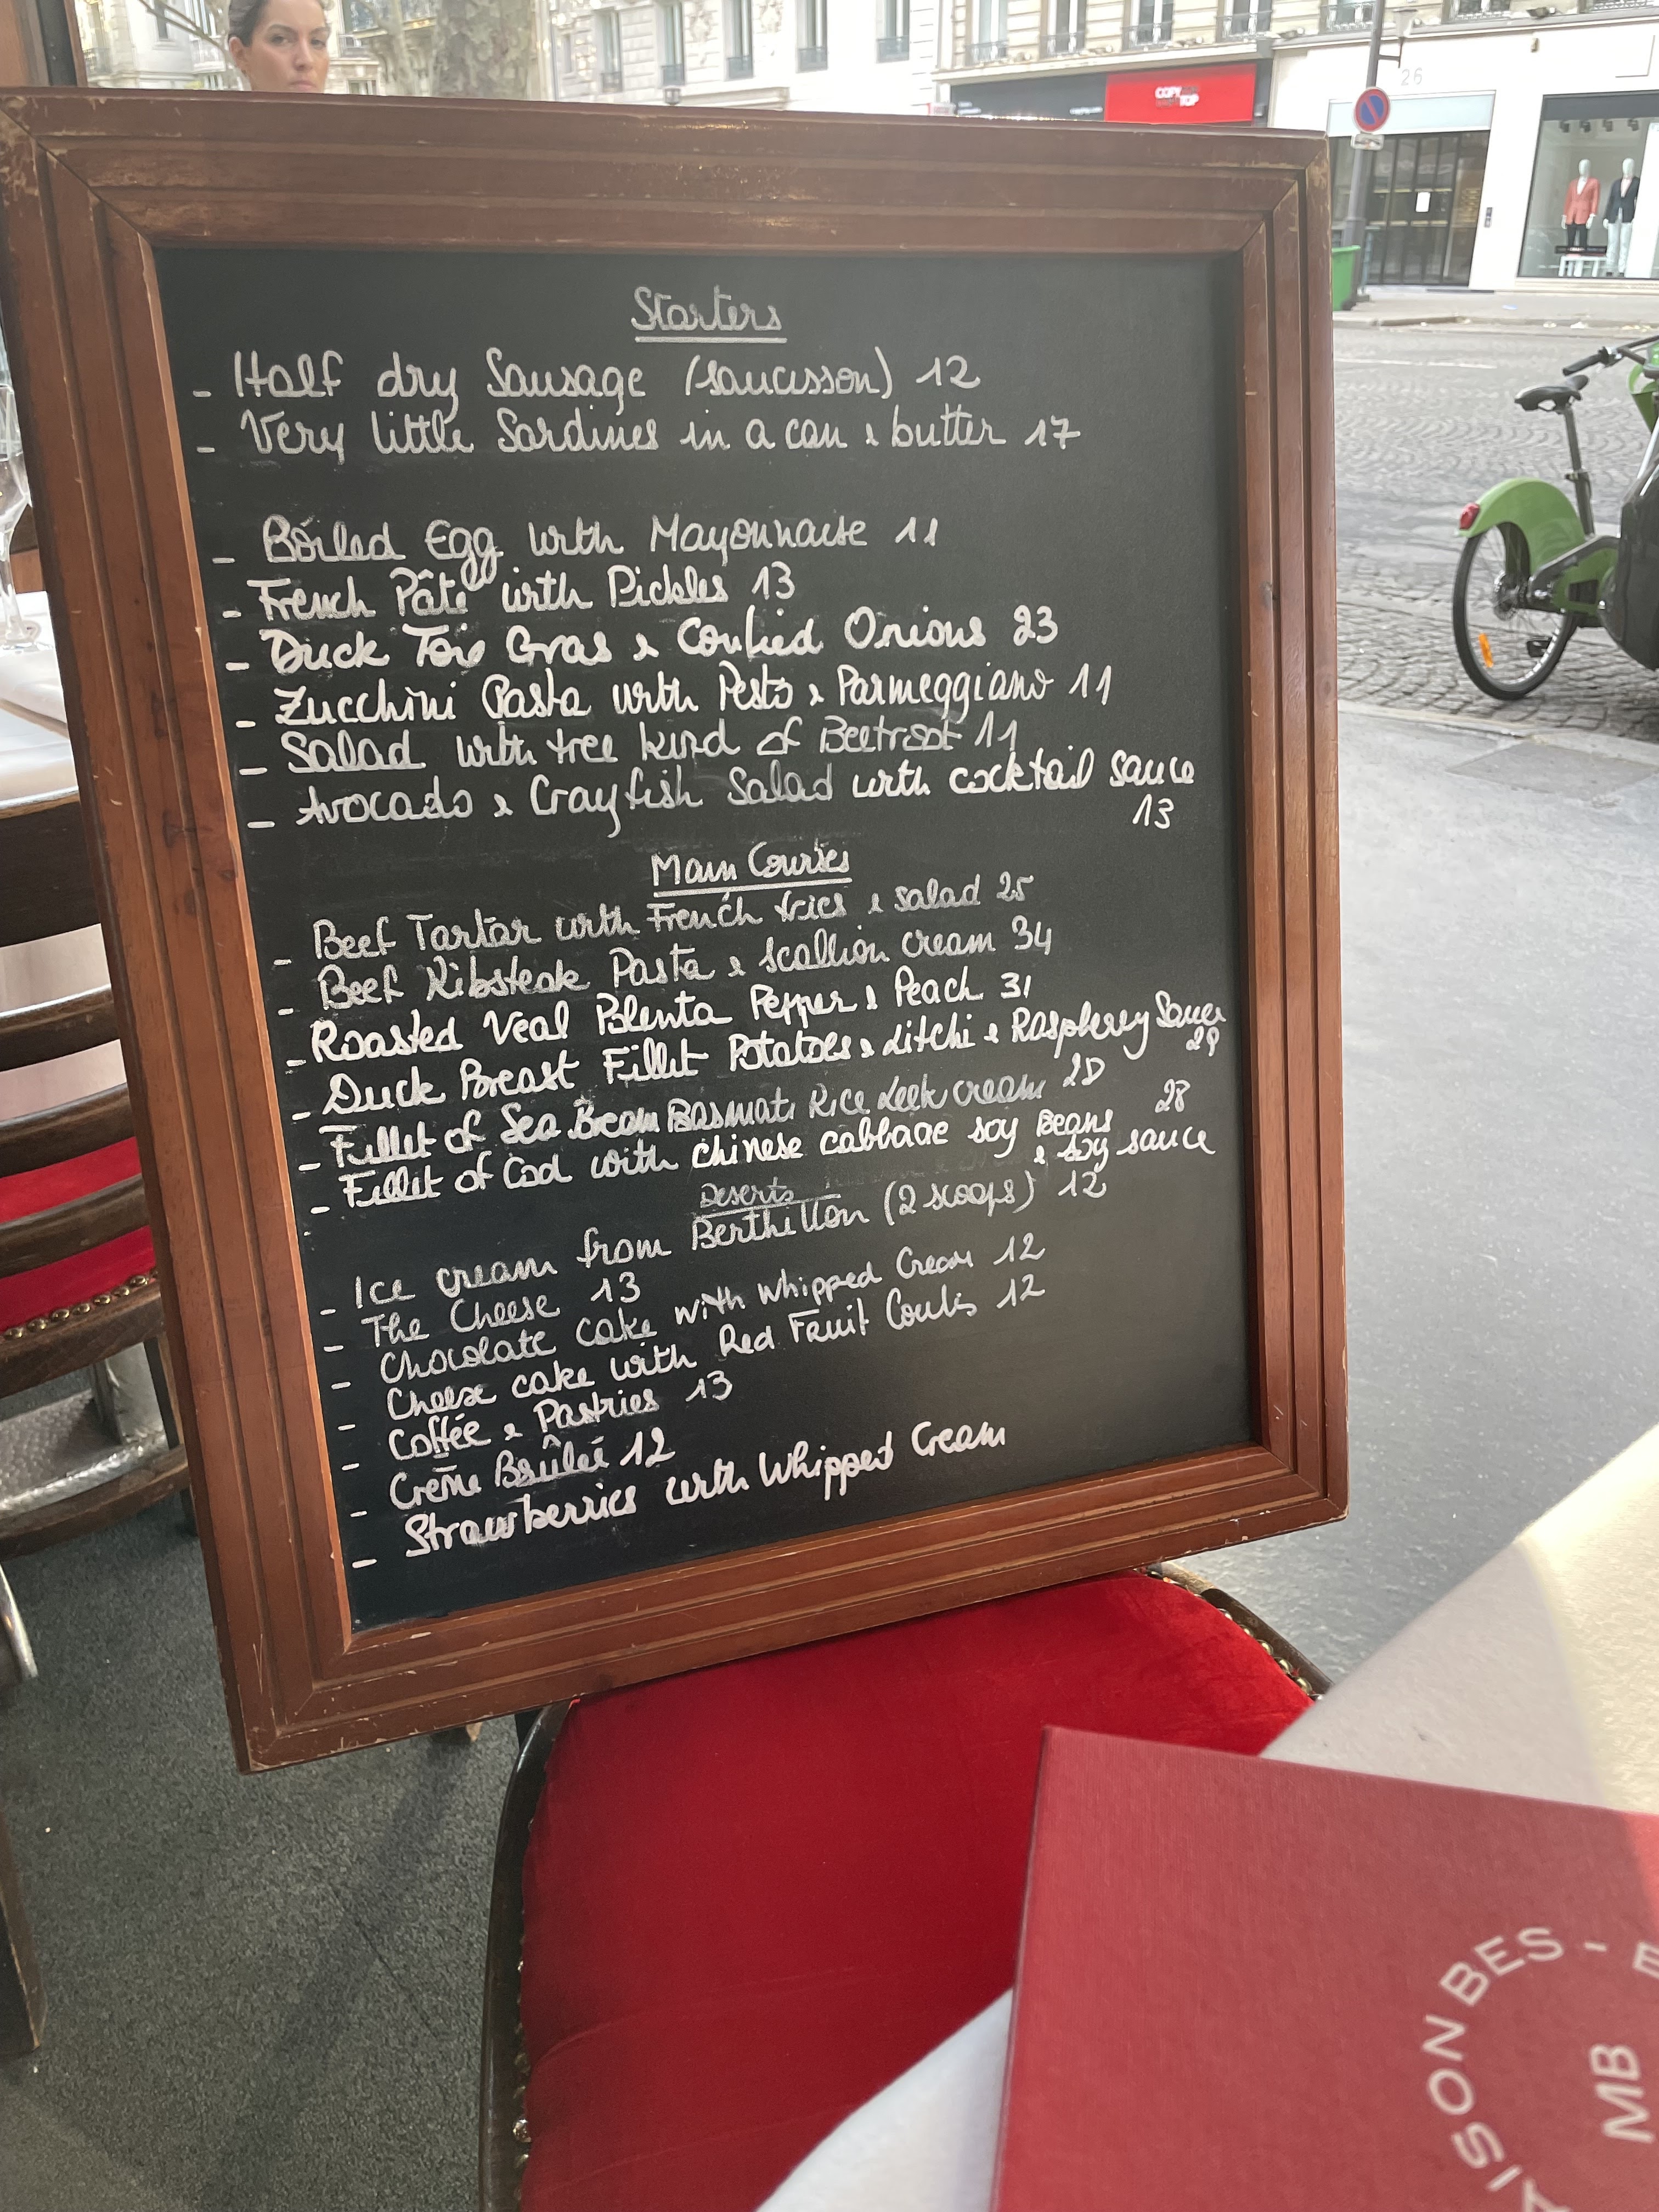 COPY TOP
26
Starters
- Half dry Sausage (saucisson) 12
- Very little Sardines in a can & butter 17
- Boiled Egg with Mayonnaise 11
- French Pâté with Pickles 13
- Duck Foie Gras & Confied Onions 23
- Zucchini Pasta with Pesto & Parmeggiano 11
- Salad with tree kind of Beetroot 11
- Avocado & Crayfish Salad with cocktail sauce
13
Main Courses
- Beef Tartar with French fries & salad 25
- Beef Ribsteak Pasta & scallion cream 34
- Roasted Veal Polenta Pepper & Peach 31
- Duck Breast Fillet Potatoes & Litchi & Raspberry Sauce
29
- Fillet of Sea Bream Basmati Rice Leek cream
- Fillet of Cod with chinese cabbage soy Beans 28
& soy sauce
Deserts
- Ice cream from Berthillon (2 scoops) 12
- The Cheese 13
- Chocolate cake with Whipped Cream 12
- Cheese cake with Red Fruit Coulis 12
- Coffée & Pastries 13
- Crème Brûlée 12
- Strawberries with Whipped Cream
SON BES -
MB